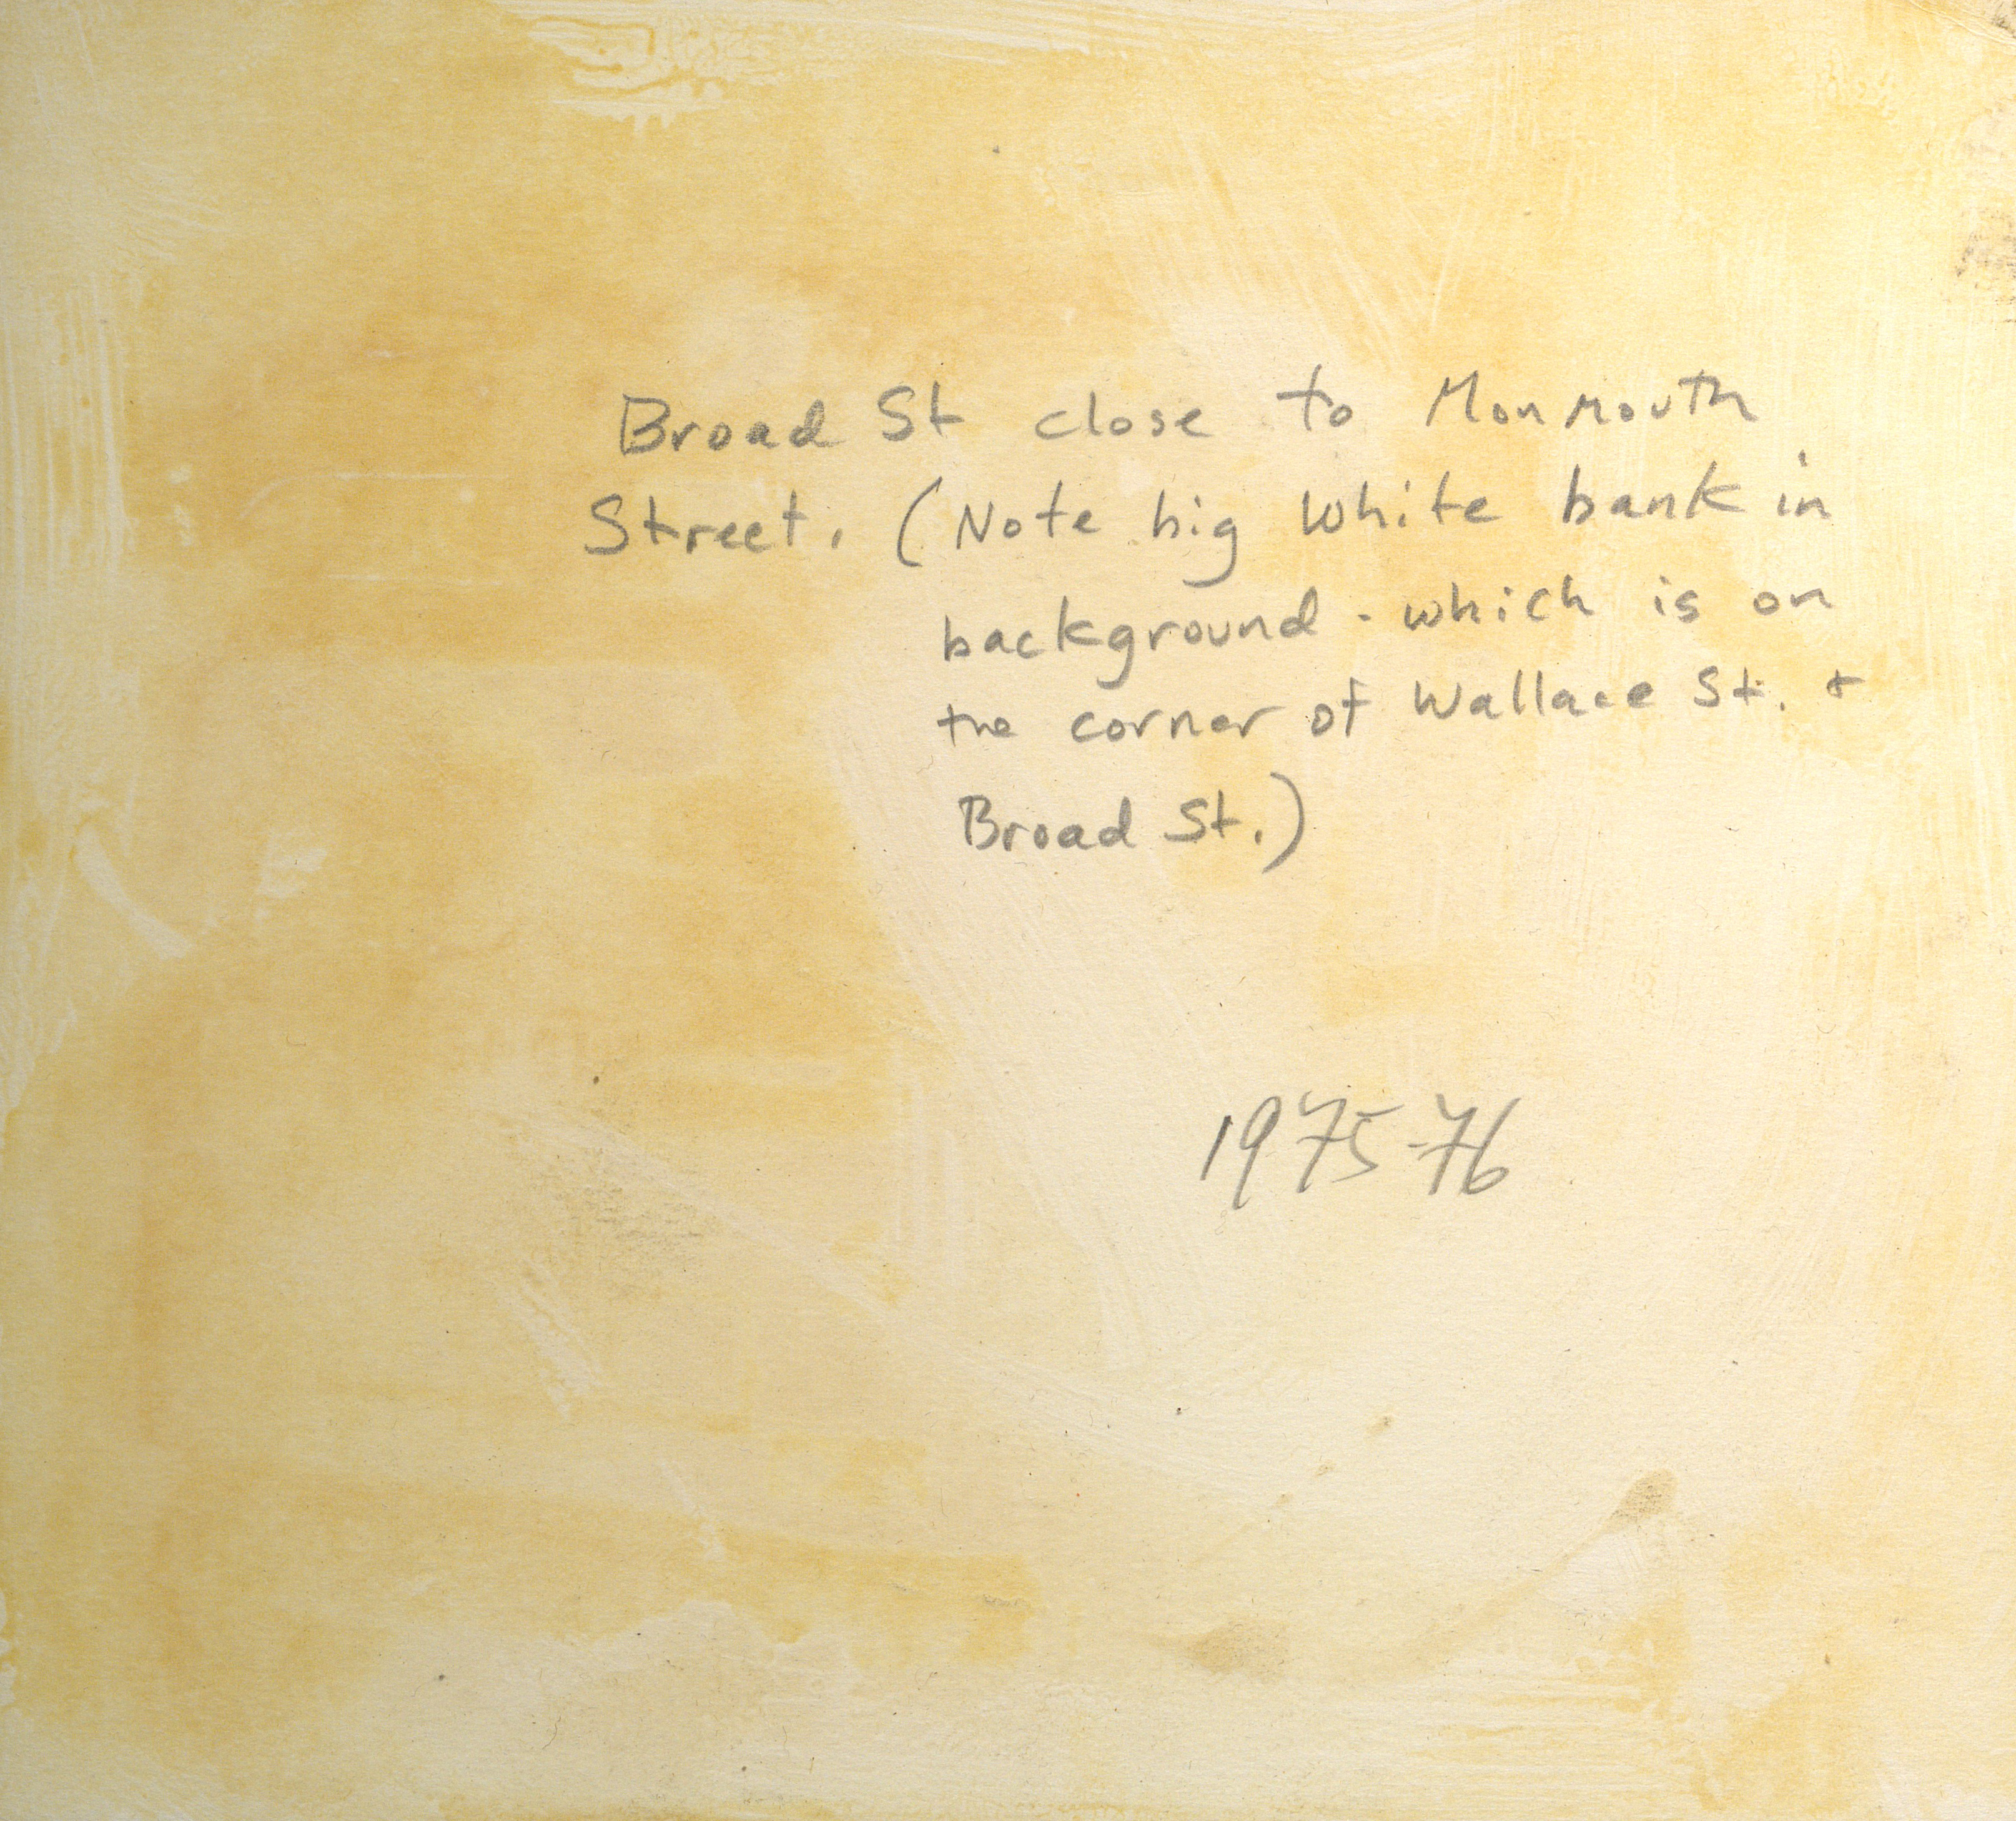 Broad St close to Monmouth
Street. (Note big white bank in
background - which is on
the corner of Wallace St. +
Broad St.)
1975-76